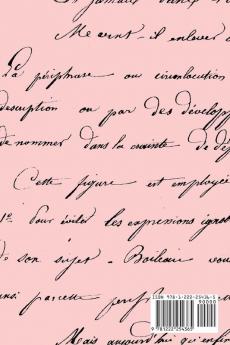 Me vient-il enlever
La périphrase ou circonlocution
description ou par des dévelop
de nommer dans la crainte de
Cette figure est employée
1º Pour éviter les expressions ignob
de son sujet - Boileau
ainsi
Mais aujourd'hui qu'enfin
ISBN 978-1-222-25436-5
90000
9781222254365